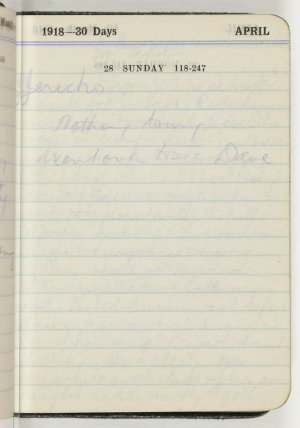 1918—30 Days APRIL
28 SUNDAY 118-247
Jericho
Nothing doing
Went over to see Dave